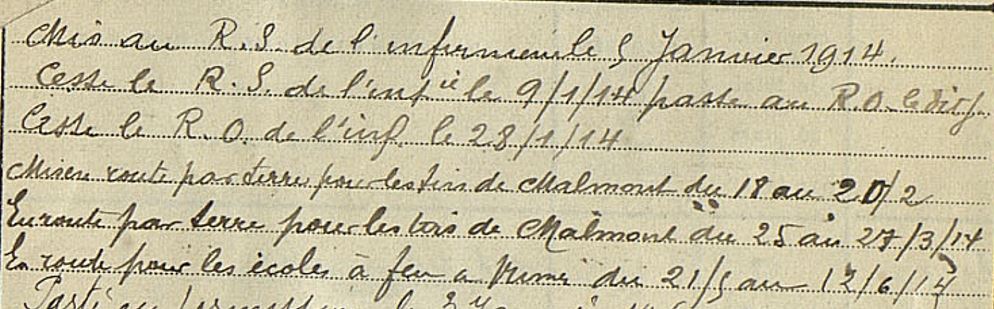 Mis au R.S. de l'infirmerie le 5 Janvier 1914.
Cesse le R.S. de l'inf.ie le 9/1/14 passe au R.O. le dit j.
Cesse le R.O. de l'inf. le 28/1/14
Mis en route par terre pour les tirs de Malmont du 18 au 20/2
En route par terre pour les tirs de Malmont du 25 au 27/3/14
En route pour les écoles à feu a du 21/5 au 12/6/14
Parti en le